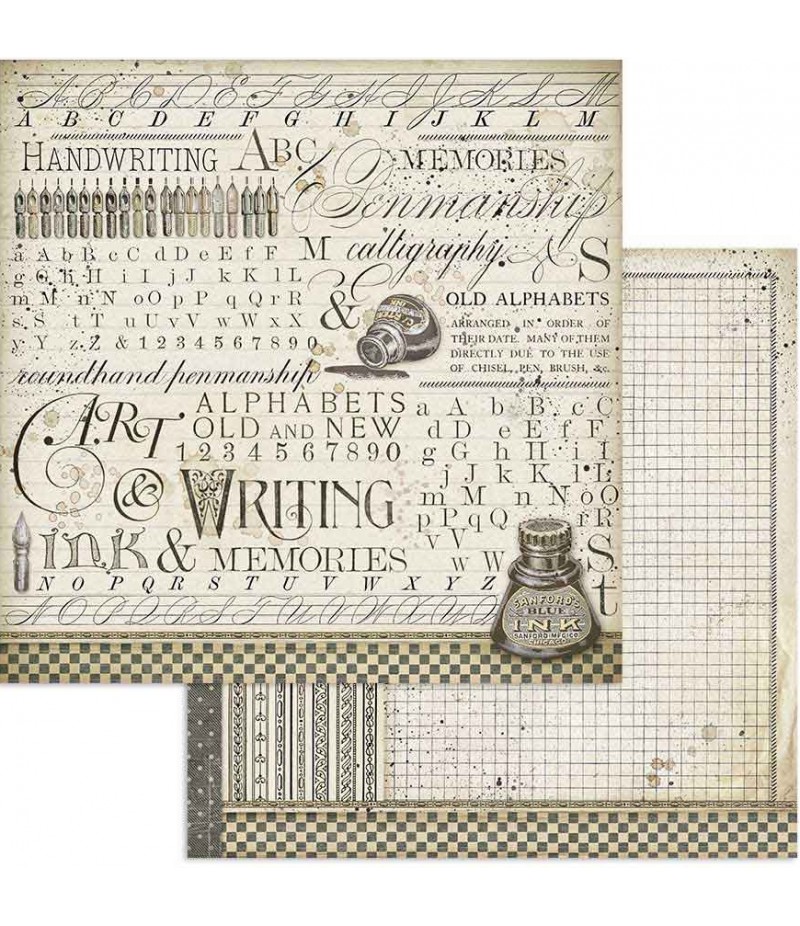 A B C D E F G H I J K L M
A B C D E F G H I J K L M
HANDWRITING ABC MEMORIES
Penmanship
a A b B c C d D e E f F M calligraphy & S
g G h H i I j J k K l L
m M n N o O p P q Q r R & OLD ALPHABETS
s S t T u U v V w W x X ARRANGED IN ORDER OF
y Y z Z & 1 2 3 4 5 6 7 8 9 0 THEIR DATE. MANY OF THEM
DIRECTLY DUE TO THE USE
OF CHISEL, PEN, BRUSH, &c.
roundhand penmanship
ART ALPHABETS
OLD AND NEW
1 2 3 4 5 6 7 8 9 0
a A b B c C
d D e E f F
g G h H i I
j J k K l L
m M n N o O
p P q Q r R
v V S
w W t
& WRITING
INK & MEMORIES
N O P Q R S T U V W X Y Z
N O P Q R S T U V W X
SANFORD'S
BLUE
INK
SANFORD MFG CO
CHICAGO